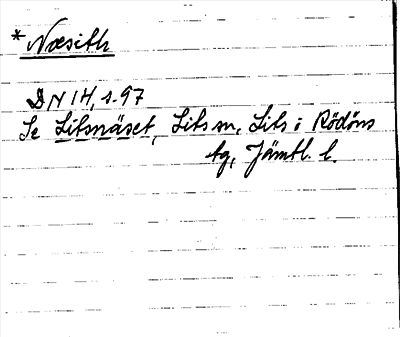 * Næsith
DN 14, s. 97
Se Litsnäset, Lits sn, Lits i Rödöns
tg, Jämtl. l.